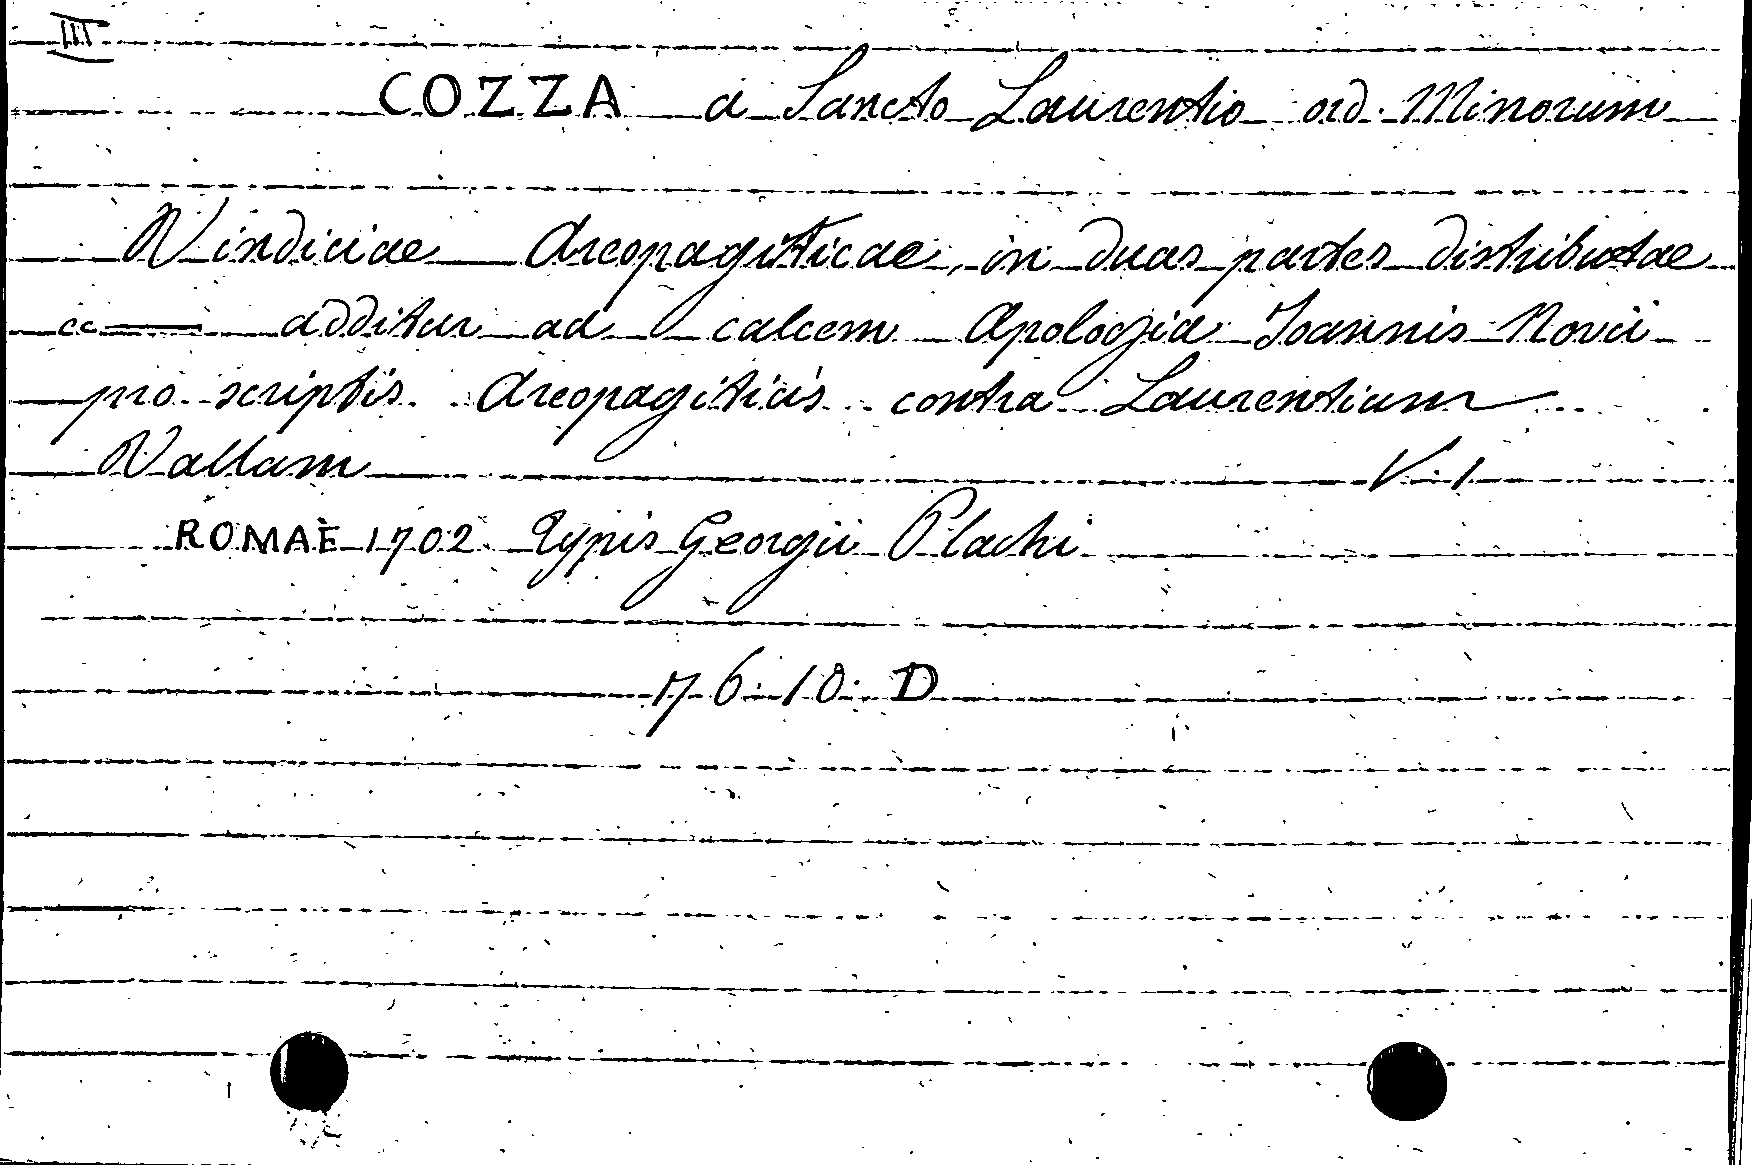 III
COZZA a Sancto Laurentio ord. Minorum
Vindiciae Areopagiticae, in duas partes distributae
cc — additur ad calcem Apologia Joannis Novii
pro scriptis Areopagiticis contra Laurentium
Vallam V. 1
ROMAE 1702 Typis Georgii Plachi
76. 10. D